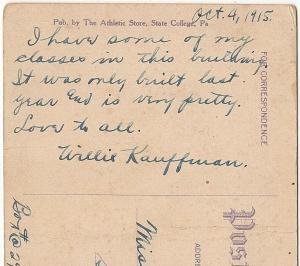 Pub. by The Athletic Store, State College, Pa
Oct. 4, 1915.
I have some of my
classes in this building.
It was only built last
year and is very pretty.
Love to all.
Willie Kauffman.
FOR CORRESPONDENCE
Post
ADDRE
Miss
Box